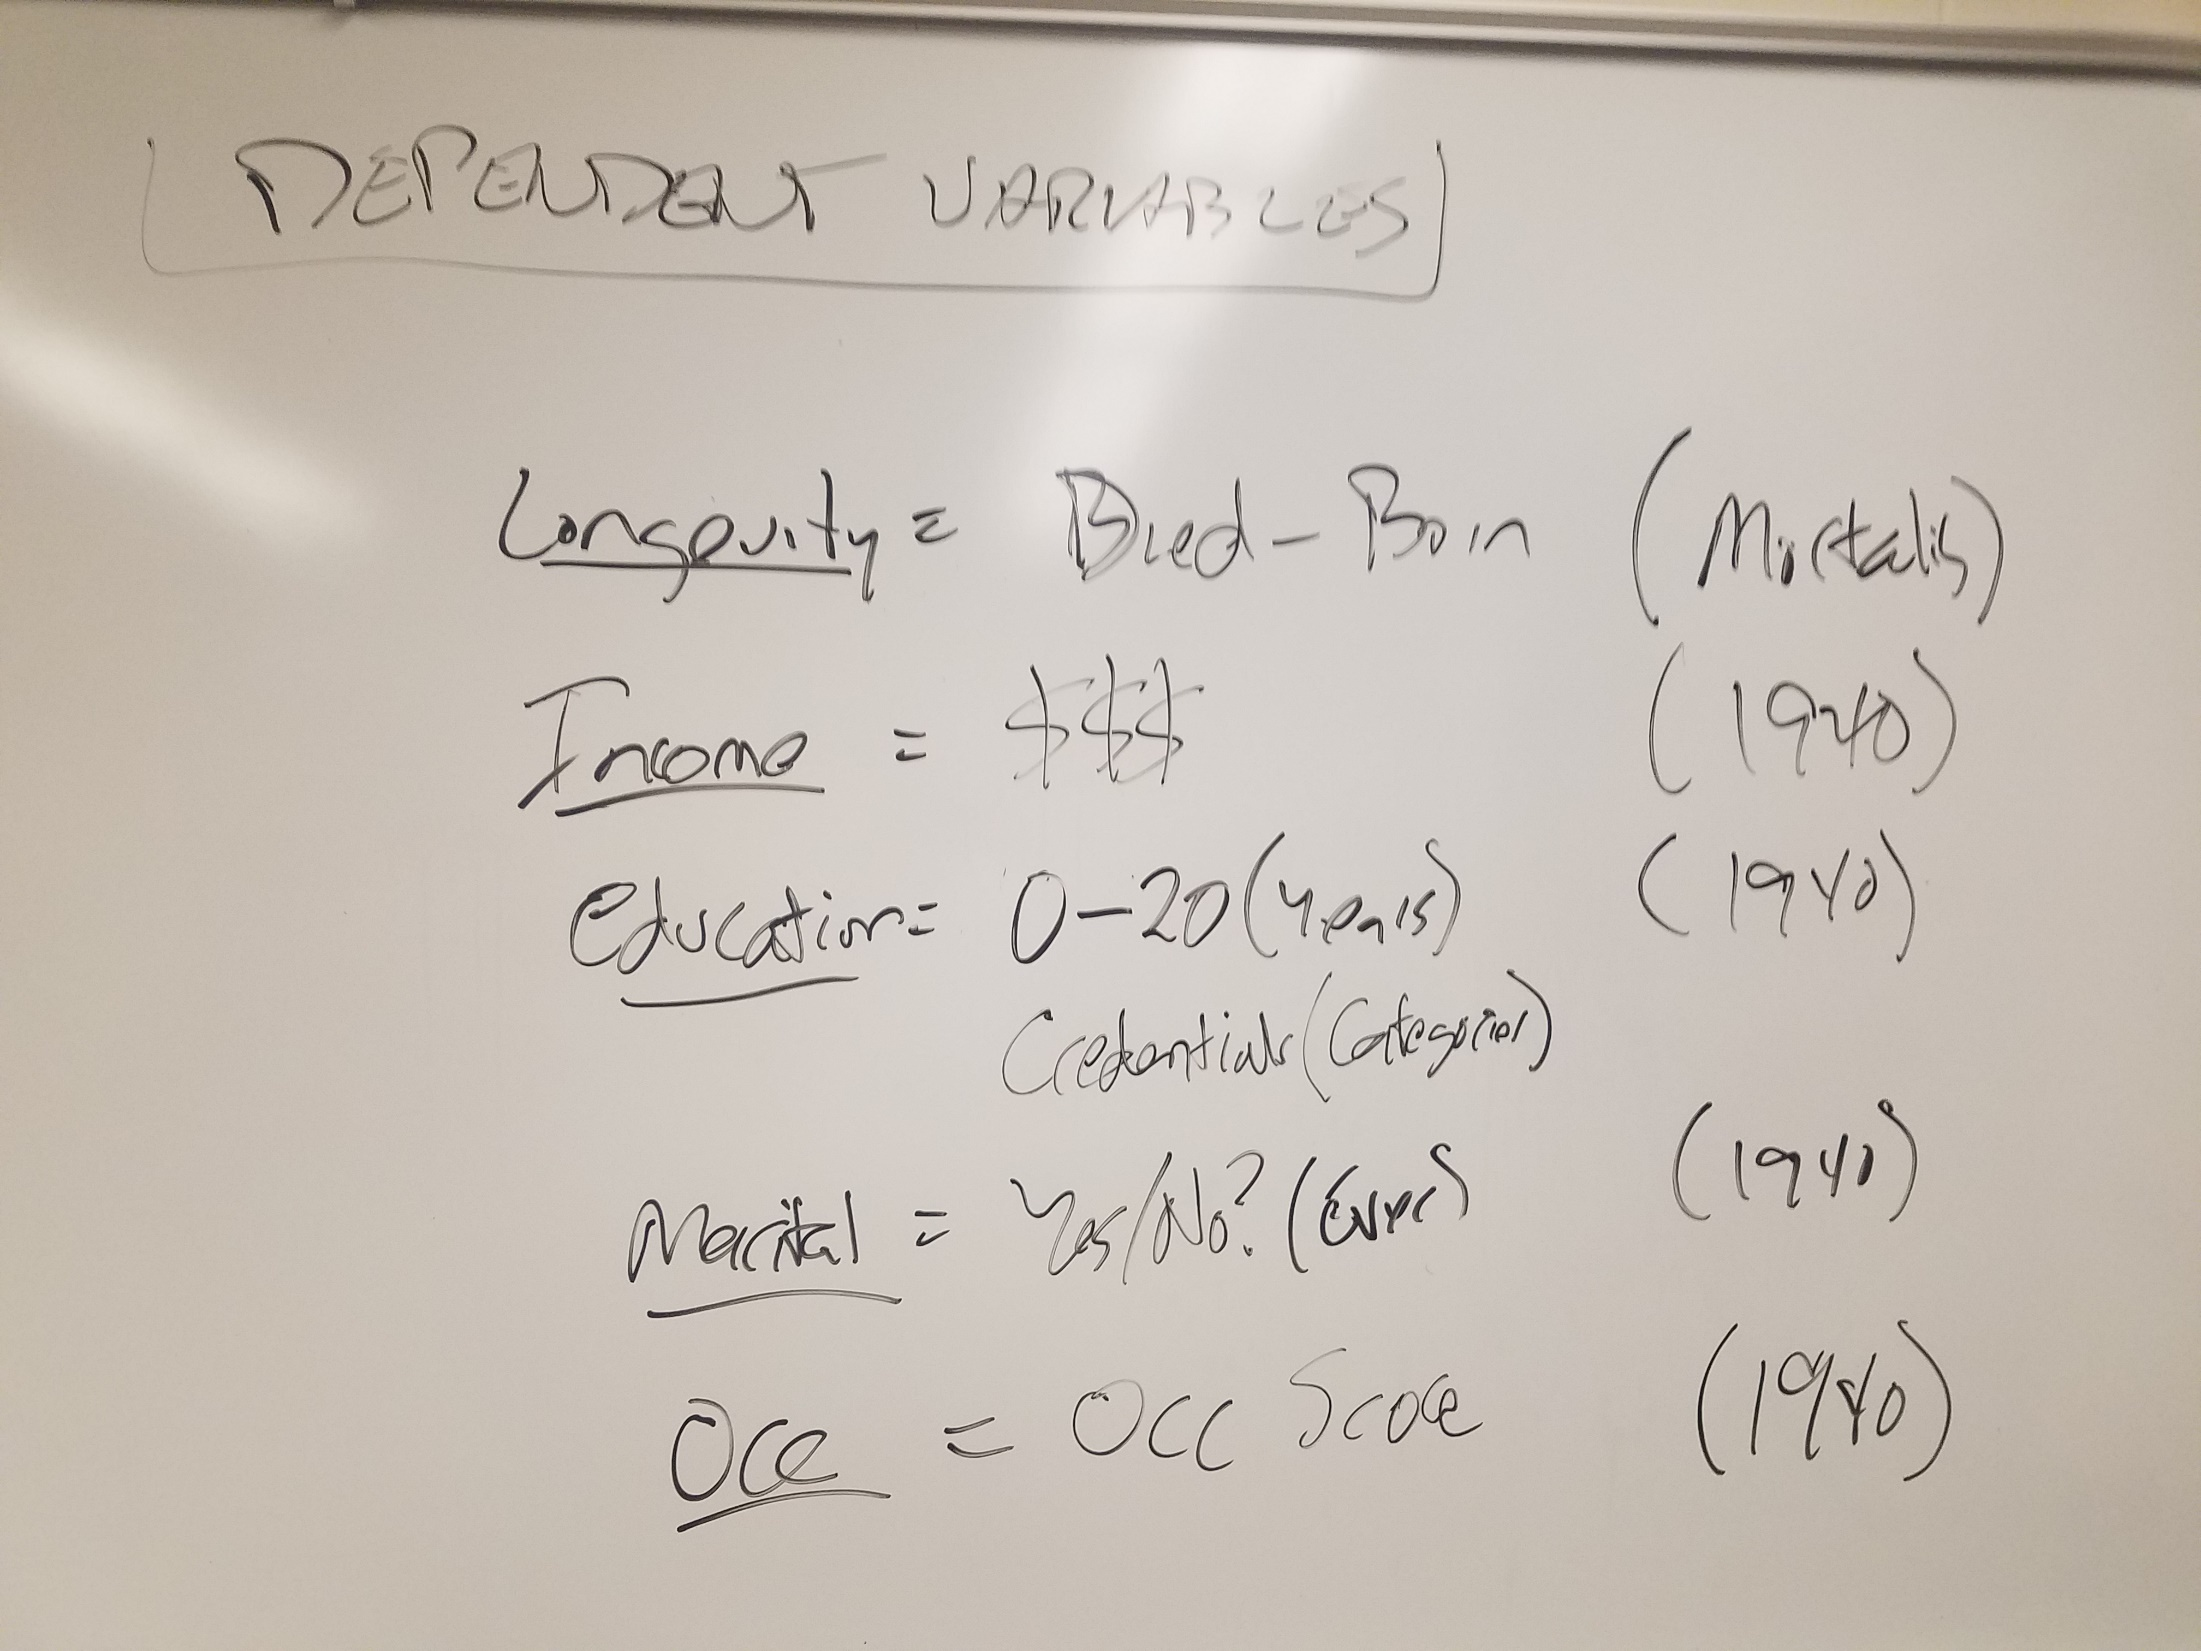 DEPENDENT VARIABLES
Longevity = Died - Born (Mortality)
Income = $$$ (1940)
Education = 0-20 (Years) (1940)
Credentials (Categories)
Marital = Yes/No? (Ever) (1940)
Occ = Occ Score (1940)